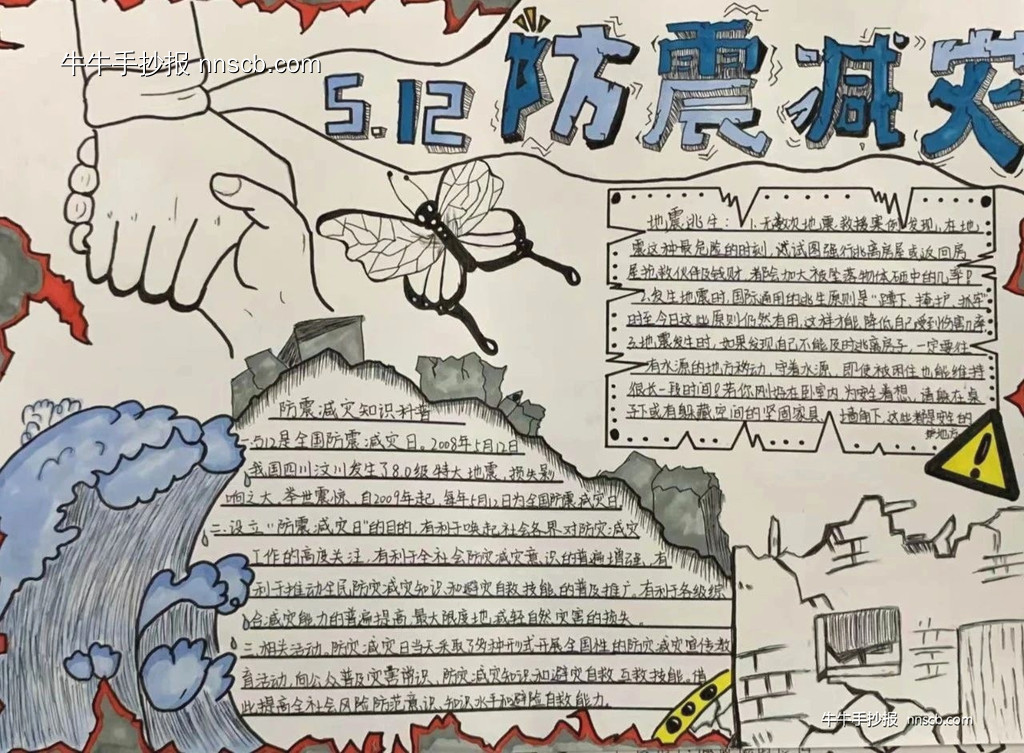 牛牛手抄报 nnscb.com
5.12 防震减灾
地震逃生：1.无数次地震救援案例发现，在地
震这种最危险的时刻，试图强行逃离房屋或返回房
屋抢救伙伴及钱财，都会加大被坠落物体砸中的几率！
2.发生地震时，国际通用的逃生原则是“蹲下、掩护、抓牢”
时至今日这些原则仍然有用，这样才能降低自己受到伤害几率
3.地震发生时，如果发现自己不能及时逃离房子，一定要往
有水源的地方移动，守着水源，即使被困住也能维持
很长一段时间！若你刚好在卧室内为安全着想，请躲在桌
子下或有躲藏空间的坚固家具、墙角下，这些都是安全的
护地方
防震减灾知识科普
一、512是全国防震减灾日。2008年5月12日
我国四川汶川发生了8.0级特大地震，损失影
响之大，举世震惊。自2009年起，每年5月12日为全国防震减灾日
二、设立“防震减灾日”的目的，有利于唤起社会各界对防灾减灾
工作的高度关注，有利于全社会防灾减灾意识的普遍增强，有
利于推动全民防灾减灾知识和避灾自救技能的普及推广，有利于各级综
合减灾能力的普遍提高，最大限度地减轻自然灾害的损失。
三、相关活动，防灾减灾日当天采取了多种形式开展全国性的防灾减灾宣传教
育活动，向公众普及灾害常识、防灾减灾知识和避灾自救互救技能，借
此提高全社会风险防范意识、知识水平和避险自救能力。
牛牛手抄报 nnscb.com